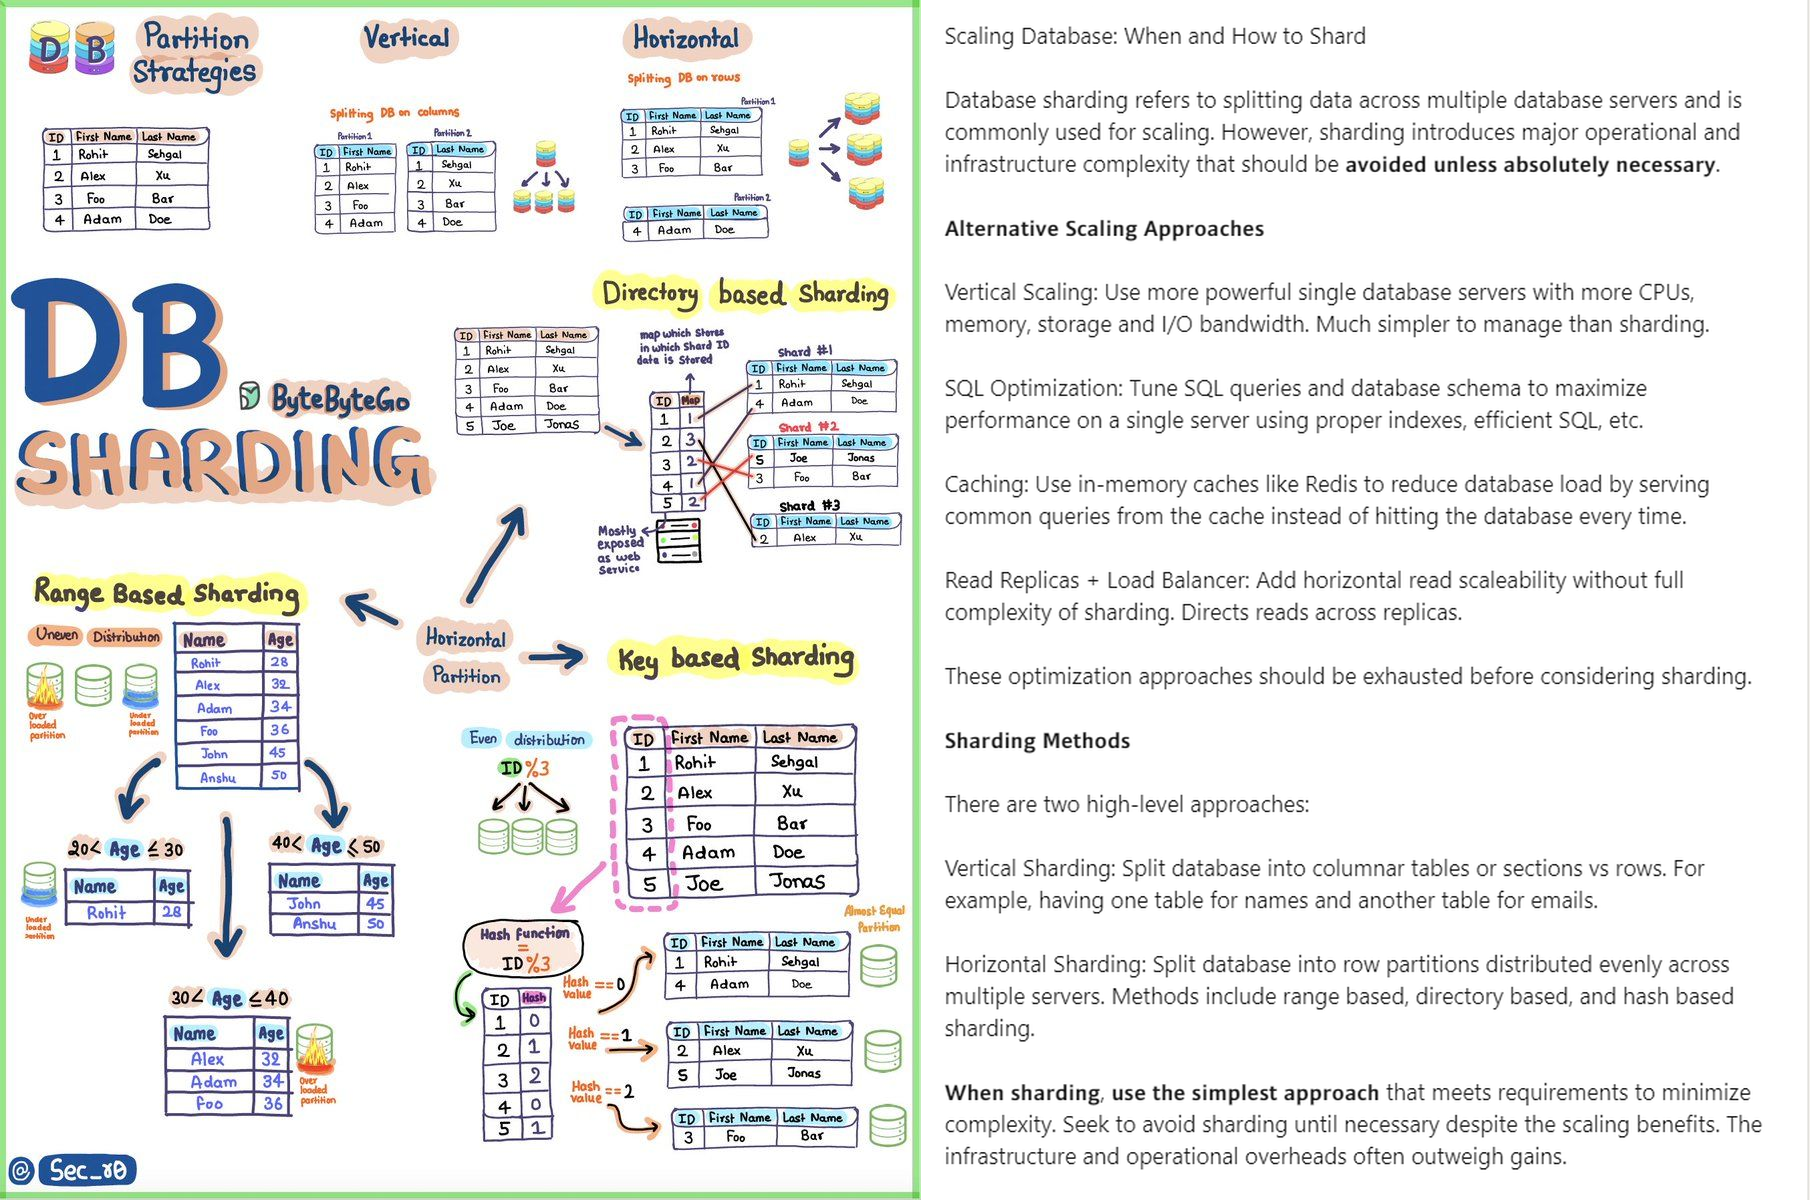 D B
Partition
Strategies
Vertical
Horizontal
Splitting DB on columns
Splitting DB on rows
ID First Name Last Name
1 Rohit Sehgal
2 Alex Xu
3 Foo Bar
4 Adam Doe
Partition 1
ID First Name
1 Rohit
2 Alex
3 Foo
4 Adam
Partition 2
ID Last Name
1 Sehgal
2 Xu
3 Bar
4 Doe
Partition 1
ID First Name Last Name
1 Rohit Sehgal
2 Alex Xu
3 Foo Bar
Partition 2
ID First Name Last Name
4 Adam Doe
DB
ByteByteGo
SHARDING
Directory based Sharding
ID First Name Last Name
1 Rohit Sehgal
2 Alex Xu
3 Foo Bar
4 Adam Doe
5 Joe Jonas
map which Stores
in which Shard ID
data is Stored
ID Map
1 1
2 3
3 2
4 1
5 2
Mostly
exposed
as web
Service
Shard #1
ID First Name Last Name
1 Rohit Sehgal
4 Adam Doe
Shard #2
ID First Name Last Name
5 Joe Jonas
3 Foo Bar
Shard #3
ID First Name Last Name
2 Alex Xu
Horizontal
Partition
Range Based Sharding
Uneven Distribution
Over
loaded
partition
Under
loaded
partition
Name Age
Rohit 28
Alex 32
Adam 34
Foo 36
John 45
Anshu 50
20< Age ≤ 30
Name Age
Rohit 28
Under
loaded
partition
40< Age ≤ 50
Name Age
John 45
Anshu 50
30< Age ≤ 40
Name Age
Alex 32
Adam 34
Foo 36
Over
loaded
partition
Key based Sharding
Even distribution
ID %3
ID First Name Last Name
1 Rohit Sehgal
2 Alex Xu
3 Foo Bar
4 Adam Doe
5 Joe Jonas
Hash function
=
ID %3
ID Hash
1 0
2 1
3 2
4 0
5 1
Hash
value == 0
Hash
value == 1
Hash
value == 2
Almost Equal
Partition
ID First Name Last Name
1 Rohit Sehgal
4 Adam Doe
ID First Name Last Name
2 Alex Xu
5 Joe Jonas
ID First Name Last Name
3 Foo Bar
@ Sec_r0
Scaling Database: When and How to Shard
Database sharding refers to splitting data across multiple database servers and is
commonly used for scaling. However, sharding introduces major operational and
infrastructure complexity that should be avoided unless absolutely necessary.
Alternative Scaling Approaches
Vertical Scaling: Use more powerful single database servers with more CPUs,
memory, storage and I/O bandwidth. Much simpler to manage than sharding.
SQL Optimization: Tune SQL queries and database schema to maximize
performance on a single server using proper indexes, efficient SQL, etc.
Caching: Use in-memory caches like Redis to reduce database load by serving
common queries from the cache instead of hitting the database every time.
Read Replicas + Load Balancer: Add horizontal read scaleability without full
complexity of sharding. Directs reads across replicas.
These optimization approaches should be exhausted before considering sharding.
Sharding Methods
There are two high-level approaches:
Vertical Sharding: Split database into columnar tables or sections vs rows. For
example, having one table for names and another table for emails.
Horizontal Sharding: Split database into row partitions distributed evenly across
multiple servers. Methods include range based, directory based, and hash based
sharding.
When sharding, use the simplest approach that meets requirements to minimize
complexity. Seek to avoid sharding until necessary despite the scaling benefits. The
infrastructure and operational overheads often outweigh gains.